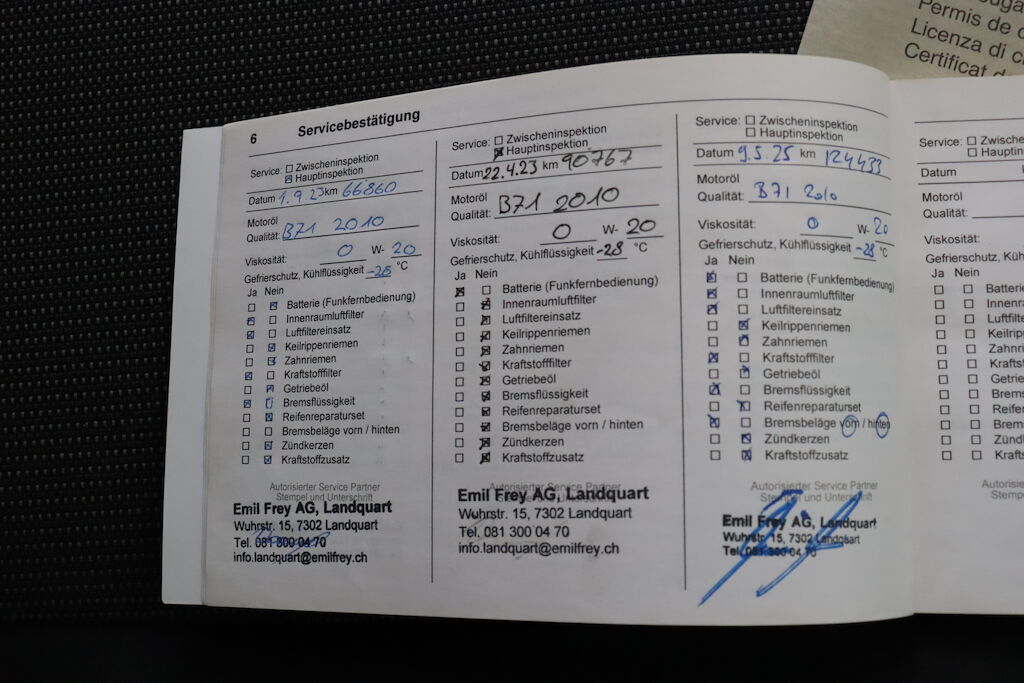 Permis de
Licenza di
Certificat
6 Servicebestätigung
Service: Zwischeninspektion
Hauptinspektion
Datum 1.9.23 km 66860
Motoröl
Qualität: B71 2010
Viskosität: 0 W- 20
Gefrierschutz, Kühlflüssigkeit -28 °C
Ja Nein
Batterie (Funkfernbedienung)
Innenraumluftfilter
Luftfiltereinsatz
Keilrippenriemen
Zahnriemen
Kraftstofffilter
Getriebeöl
Bremsflüssigkeit
Reifenreparaturset
Bremsbeläge vorn / hinten
Zündkerzen
Kraftstoffzusatz
Autorisierter Service Partner
Stempel und Unterschrift
Emil Frey AG, Landquart
Wuhrstr. 15, 7302 Landquart
Tel. 081 300 04 70
info.landquart@emilfrey.ch
Service: Zwischeninspektion
Hauptinspektion
Datum 22.4.23 km 90767
Motoröl
Qualität: B71 2010
Viskosität: 0 W- 20
Gefrierschutz, Kühlflüssigkeit -28 °C
Ja Nein
Batterie (Funkfernbedienung)
Innenraumluftfilter
Luftfiltereinsatz
Keilrippenriemen
Zahnriemen
Kraftstofffilter
Getriebeöl
Bremsflüssigkeit
Reifenreparaturset
Bremsbeläge vorn / hinten
Zündkerzen
Kraftstoffzusatz
Autorisierter Service Partner
Stempel und Unterschrift
Emil Frey AG, Landquart
Wuhrstr. 15, 7302 Landquart
Tel. 081 300 04 70
info.landquart@emilfrey.ch
Service: Zwischeninspektion
Hauptinspektion
Datum 9.5.25 km 124433
Motoröl
Qualität: B71 2010
Viskosität: 0 W- 20
Gefrierschutz, Kühlflüssigkeit -28 °C
Ja Nein
Batterie (Funkfernbedienung)
Innenraumluftfilter
Luftfiltereinsatz
Keilrippenriemen
Zahnriemen
Kraftstofffilter
Getriebeöl
Bremsflüssigkeit
Reifenreparaturset
Bremsbeläge vorn / hinten
Zündkerzen
Kraftstoffzusatz
Autorisierter Service Partner
Stempel und Unterschrift
Emil Frey AG, Landquart
Wuhrstr. 15, 7302 Landquart
Tel. 081 300 04 70
Service: Zwische
Hauptin
Datum
Motoröl
Qualität:
Viskosität:
Gefrierschutz, Küh
Ja Nein
Batter
Innenr
Luftfilt
Keilrip
Zahnr
Krafts
Getrie
Brems
Reifen
Brems
Zündk
Krafts
Autoris
Ste